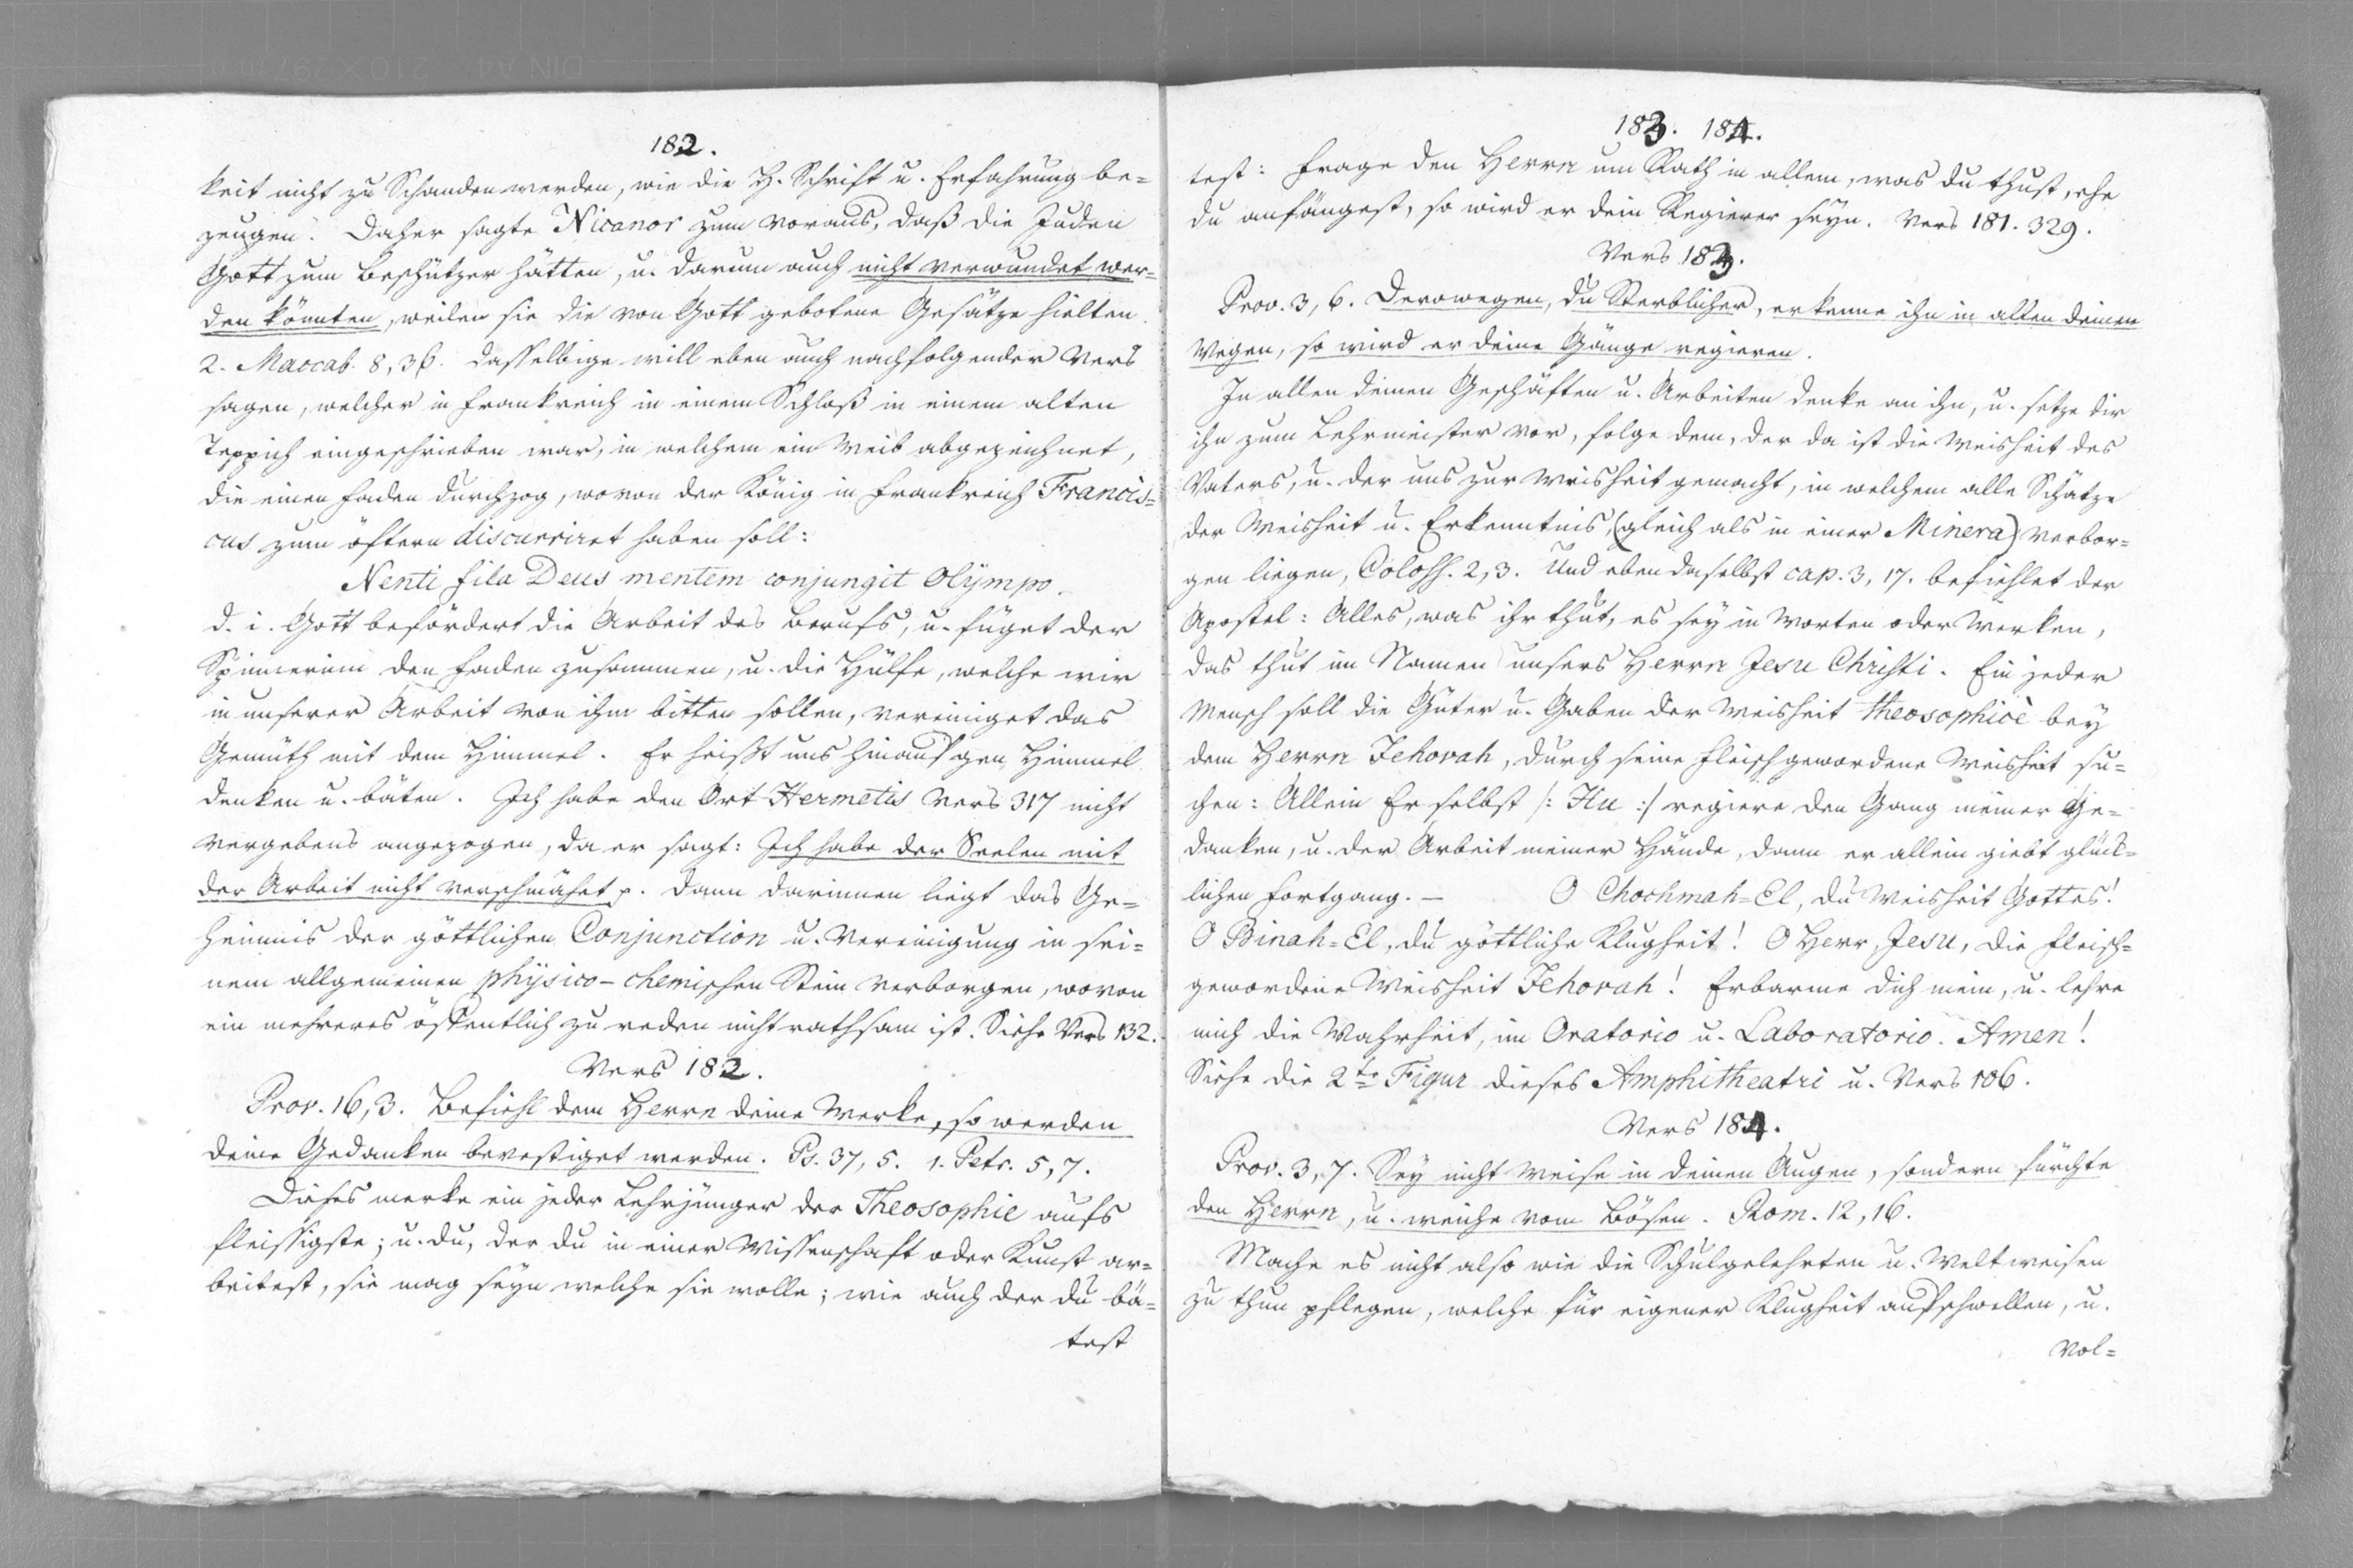 182.
keit nicht zu Schanden werden, wie die H. Schrift u. Erfahrung be=
zeugen. Daher sagte Nicanor zum voraus, daß die Juden
Gott zum Beschützer hätten, u. darum auch nicht verwundet wer=
den könnten, weilen sie die von Gott gebotene Gesätze hielten.
2. Maccab. 8, 36. Dasselbige will eben auch nachfolgender Vers
sagen, welcher in Frankreich in einem Schloß in einem alten
Teppich eingeschrieben war, in welchem ein Weib abgezeichnet,
die einen Faden durchzog, wovon der König in Frankreich Francis=
cus zum öftern discurriret haben soll:
Nenti fila Deus mentem conjungit Olÿmpo.
d. i. Gott befördert die Arbeit des Berufs, u. füget der
Spinnerinn den Faden zusammen, u. die Hülfe, welche wir
in unserer Arbeit von ihm bitten sollen, vereiniget das
Gemüth mit dem Himmel. Er heißt uns hinauf gen Himmel
denken u. bäten. Ich habe den Ort Hermetis Vers 317 nicht
vergebens angezogen, da er sagt: Ich habe der Seelen mit
der Arbeit nicht verschmähet p. dann darinnen liegt das Ge=
heimnis der göttlichen Conjunction u. Vereinigung in sei=
nem allgemeinen phÿsico-chemischen Stein verborgen, wovon
ein mehreres öffentlich zu reden nicht rathsam ist. Siehe Vers 132.
Vers 182.
Prov. 16, 3. Befiehl dem Herrn deine Werke, so werden
deine Gedanken bevestiget werden. Ps. 37, 5. 1. Petr. 5, 7.
Dieses merke ein jeder Lehrjünger der Theosophie aufs
fleissigste; u. du, der du in einer Wissenschaft oder Kunst ar=
beitest, sie mag seyn welche sie wolle; wie auch der du bä=
test
183. 184.
test: Frage den Herrn um Rath in allem, was du thust, ehe
du anfängest, so wird er dein Regierer seyn. Vers 181. 329.
Vers 183.
Prov. 3, 6. Derowegen, du Sterblicher, erkenne ihn in allen deinen
Wegen, so wird er deine Gänge regieren.
In allen deinen Geschäften u. Arbeiten denke an ihn, u. setze dir
ihn zum Lehrmeister vor, folge dem, der da ist die Weisheit des
Vaters, u. der uns zur Weisheit gemacht, in welchem alle Schätze
der Weisheit u. Erkenntnis, (gleich als in einer Minera) verbor=
gen liegen, Coloss. 2, 3. Und eben daselbst cap. 3, 17. befiehlet der
Apostel: Alles, was ihr thut, es sey in Worten oder Werken,
das thut im Namen unsers Herrn Jesu Christi. Ein jeder
Mensch soll die Güter u. Gaben der Weisheit theosophicè bey
dem Herrn Jehovah, durch seine Fleischgewordene Weisheit su=
chen: Allein Er selbst /: Hu :/ regiere den Gang meiner Ge=
danken, u. der Arbeit meiner Hände, dann er allein giebt glück=
lichen Fortgang. — O Chochmah=El, du Weisheit Gottes!
O Binah=El, du göttliche Klugheit! O Herr, Jesu, die Fleisch=
gewordene Weisheit Jehovah! Erbarme dich mein, u. lehre
mich die Wahrheit, im Oratorio u. Laboratorio. Amen!
Siehe die 2te Figur dieses Amphitheatri u. Vers 106.
Vers 184.
Prov. 3, 7. Sey nicht weise in deinen Augen, sondern fürchte
den Herrn, u. weiche vom Bösen. Rom. 12, 16.
Mache es nicht also wie die Schulgelehrten u. Weltweisen
zu thun pflegen, welche für eigener Klugheit aufschwellen, u.
vol=